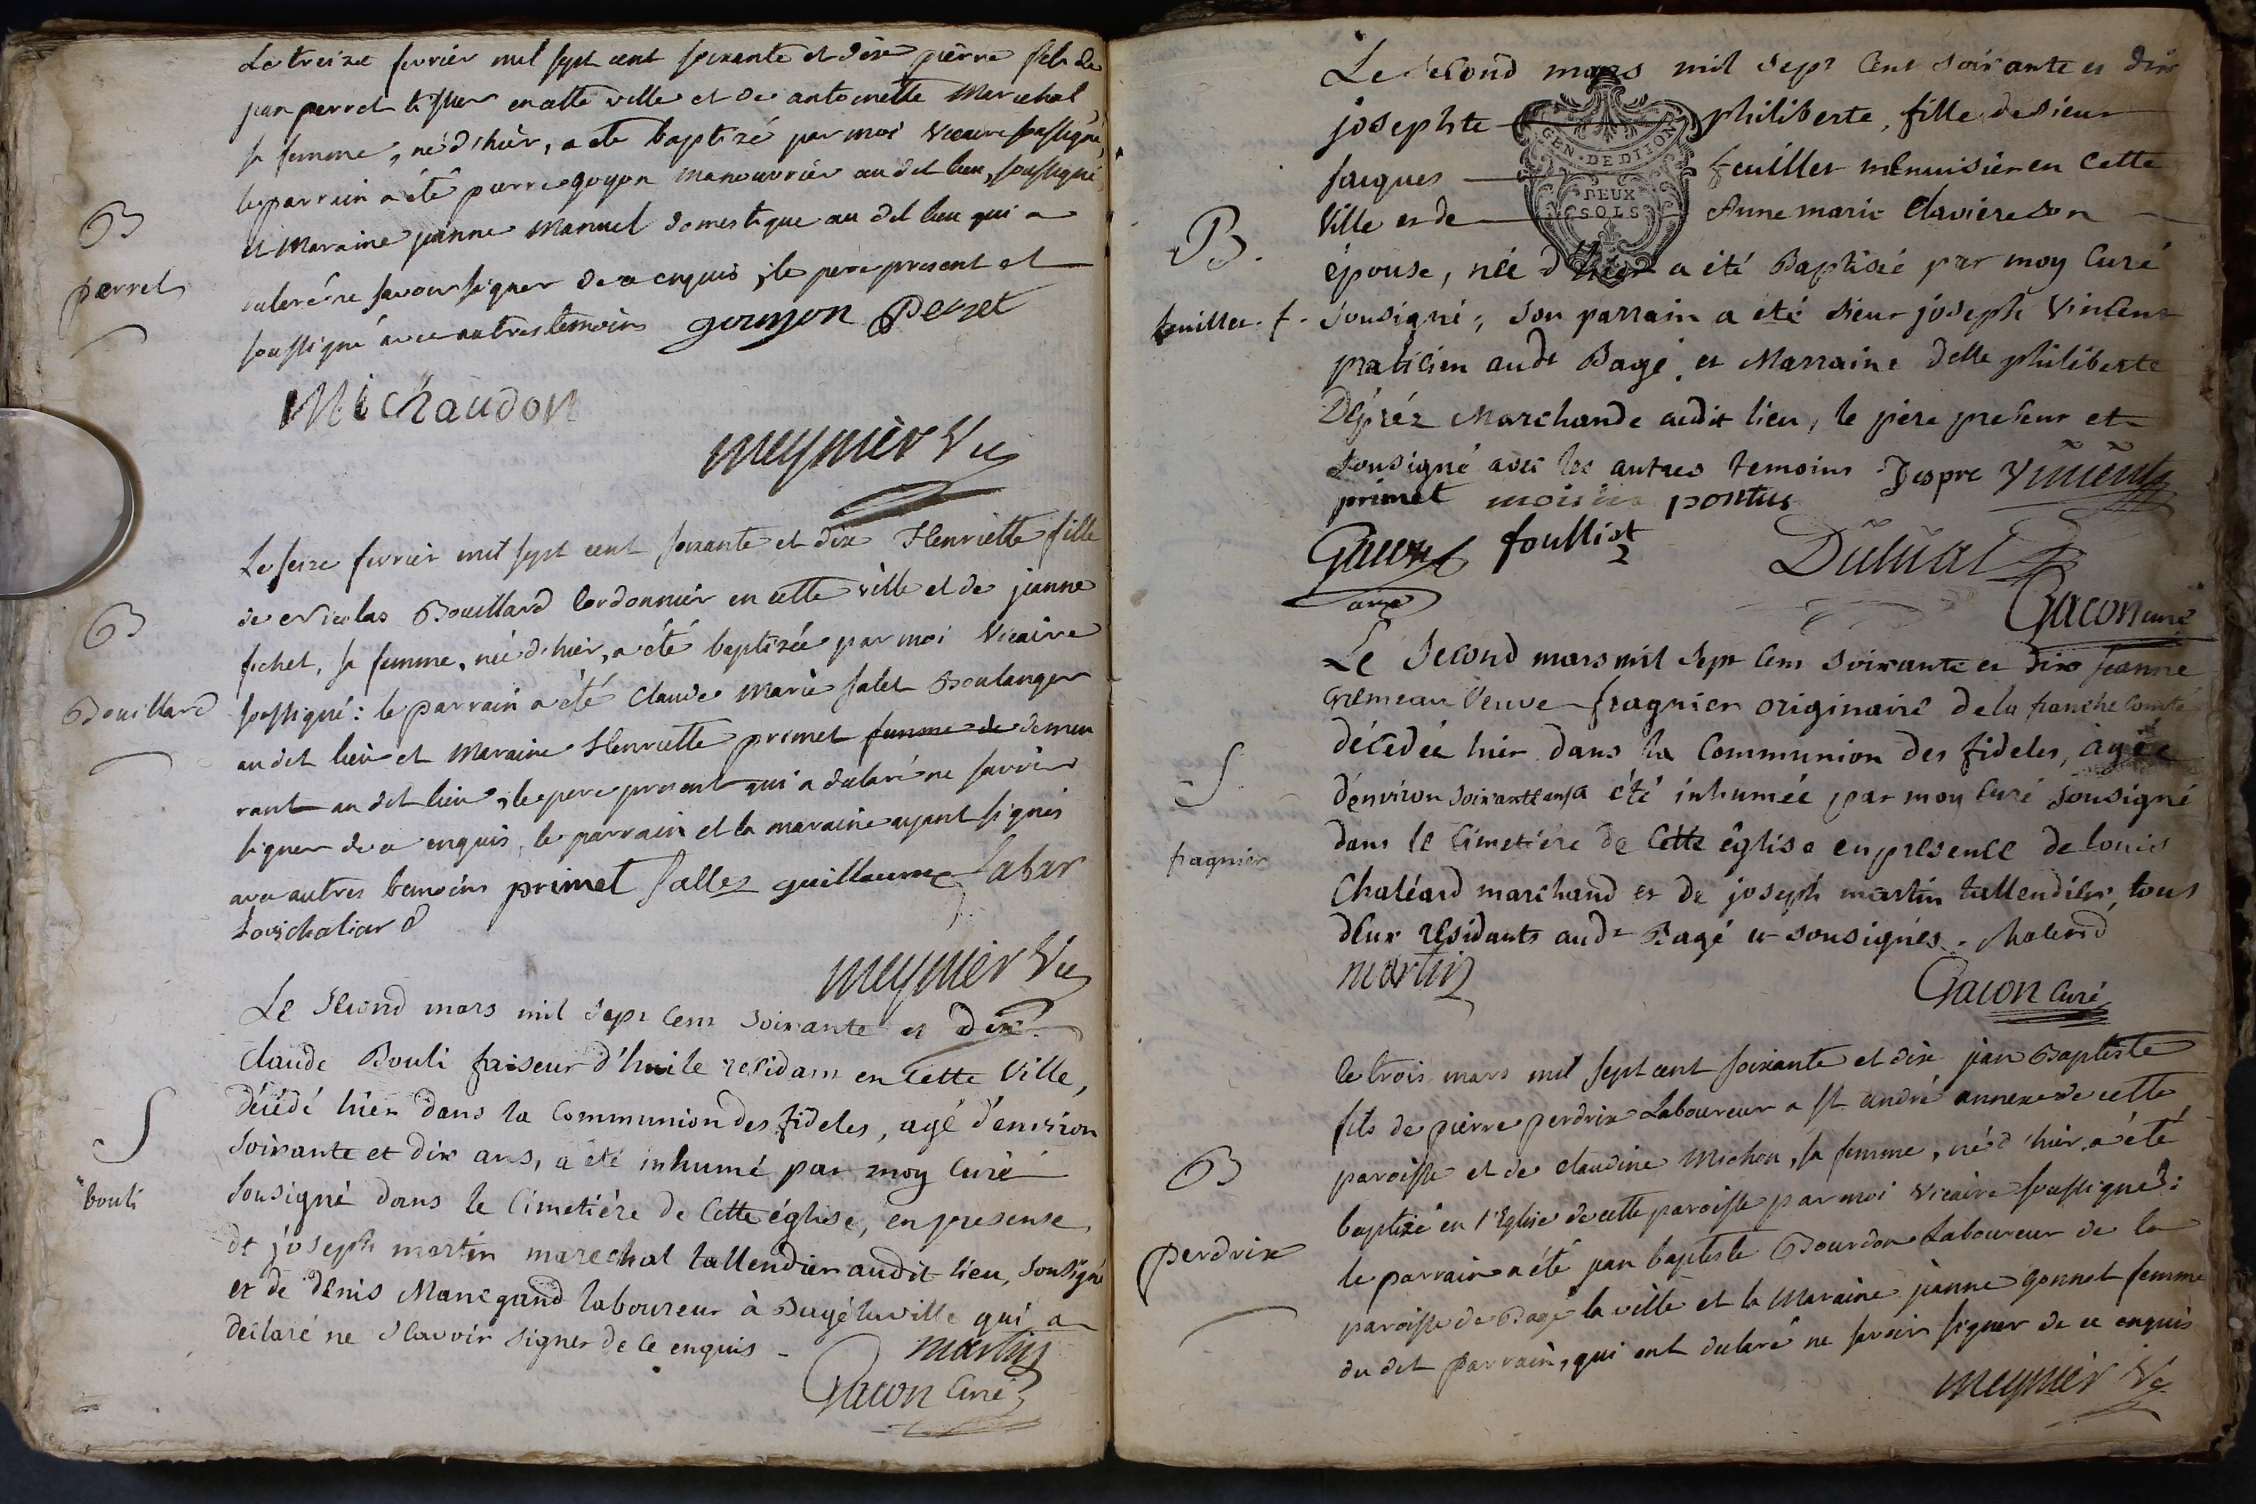 Le treize fevrier mil sept cent soixante et dix pierre fils de
jean perret tissier en cette ville et de antoinette Marechal
sa femme, né d'hier, a été baptizé par moi Vicaire soussigné,
le parrain a été pierre goyon manouvrier au dit lieu, soussigné
B
et Maraine jeanne Manuel domestique au dit lieu qui a
perret
declaré ne savoir signer de ce enquis, le pere present et
soussigné avec autres temoins goujon Perret
Michaudon
meynier Vic
Le seize fevrier mil sept cent soixante et dix Henriette fille
de Nicolas Bouillard Cordonnier en cette ville et de jeanne
B
fichet, sa femme, née d'hier, a été baptizée par moi Vicaire
Bouillard
soussigné: le parrain a été Claude Marie salet Boulanger
au dit lieu et Maraine Henriette primet femme de demeu
rant au dit lieu, le pere present qui a declaré ne savoir
signer de ce enquis, le parrain et la maraine ayant signés
avec autres temoins primet Sallez guillaume
Louis chaliard
meynier Vic
Le Second mars mil sept Cent soixante et dix
Claude Bouli faiseur d'huile residant en Cette Ville,
décédé hier dans la Communion des fideles, agé d'environ
S
soixante et dix ans, a été inhumé par moy Curé
bouli
sousigné dans le Cimetiére de Cette église, en presense,
de joseph martin marechal tallendier audit lieu, sousigné
et de denis Manegand laboureur à Bagé la ville qui a
declaré ne Scavoir signer de Ce enquis - martin
Gacon Curé
Le second mars mil sept Cent soixante et dix
josephte philiberte, fille de sieur
GEN. DE DIJON
jacques feuillet menuisier en Cette
DEUX
SOLS
B.
Ville et de Anne marie Claviere son
épouse, née d'hier a été Baptisée par moy Curé
feuillet. f.
sousigné; son parrain a été sieur joseph Vincent
praticien audt Bagé, et Marraine delle philiberte
Dépréz Marchande audit lieu, le pere present et
sousigné avec les autres temoins Depre Vincent
primet moisier pontus
Gacon foullist Duluat
Gacon curé
Le Second mars mil sept Cent soixante et dix jeanne
Gremeau Veuve fragnier originaire de la franche Comté
décédée hier dans la Communion des fideles, agée
S
d'environ soixante ans a été inhumée par moy Curé sousigné
fragnier
dans le Cimetiére de Cette église en presence de louis
Chaléard marchand et de joseph martin tallendier, tous
deux residants audt Bagé et sousignés. Chaleard
martin
Gacon Curé
le trois mars mil sept cent soixante et dix jean Baptiste
fils de pierre perdrix Laboureur a St andré annexe de cette
B
paroisse et de claudine Michon, sa femme, né d'hier a été
baptizé en l'Eglise de cette paroisse par moi vicaire soussigné:
perdrix
le parrain a été jean baptiste Bourdon Laboureur de la
paroisse de Bagé la ville et la Maraine jeanne gonnet femme
du dit parrain, qui ont declaré ne savoir signer de ce enquis
meynier Vic